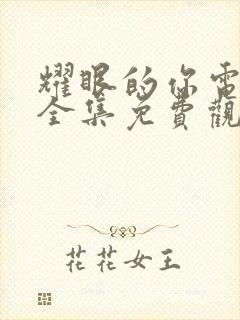 耀眼的你電
全集免費觀
花花女王